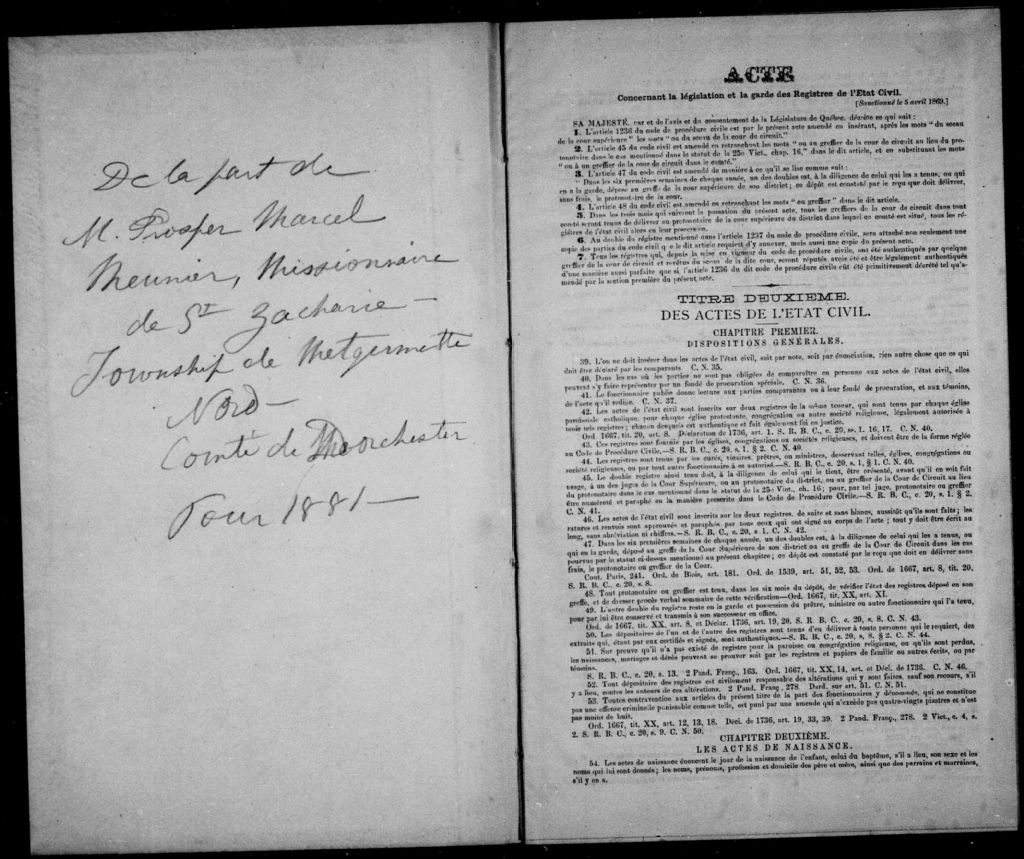 De la part de
M. Prosper Marcel
Meunier, Missionnaire
de St Zacharie —
Township de Metgermette
Nord —
Comté de Dorchester
Pour 1881 —
ACTE
Concernant la législation et la garde des Registres de l'Etat Civil.
[Sanctionné le 5 avril 1869.]
SA MAJESTÉ, par et de l'avis et du consentement de la Législature de Québec, décrète ce qui suit :
1. L'article 1236 du code de procédure civile est par le présent acte amendé en insérant, après les mots " du sceau
de la cour supérieure " les mots " ou du sceau de la cour de circuit."
2. L'article 45 du code civil est amendé en retranchant les mots " ou au greffier de la cour de circuit au lieu du pro-
tonotaire dans le cas mentionné dans le statut de la 25e Vict., chap. 16," dans le dit article, et en substituant les mots
" ou à un greffier de la cour de circuit dans le comté."
3. L'article 47 du code civil est amendé de manière à ce qu'il se lise comme suit :
" Dans les six premières semaines de chaque année, un des doubles est, à la diligence de celui qui les a tenus, ou qui
en a la garde, déposé au greffe de la cour supérieure de son district ; ce dépôt est constaté par le reçu que doit délivrer,
sans frais, le protonotaire de la cour.
4. L'article 48 du code civil est amendé en retranchant les mots " ou greffier " dans le dit article.
5. Dans les trois mois qui suivront la passation du présent acte, tous les greffiers de la cour de circuit dans tout
comté seront tenus de délivrer au protonotaire de la cour supérieure du district dans lequel un comté est situé, tous les re-
gistres de l'état civil alors en leur possession.
6. Au double du régistre mentionné dans l'article 1237 du code de procédure civile, sera attaché non seulement une
copie des parties du code civil que le dit article requiert d'y annexer, mais aussi une copie du présent acte.
7. Tous les régistres qui, depuis la mise en vigueur du code de procédure civile, ont été authentiqués par quelque
greffier de la cour de circuit et revêtus du sceau de la dite cour, seront réputés avoir été et être légalement authentiqués
d'une manière aussi parfaite que si l'article 1236 du dit code de procédure civile eût été primitivement décrété tel qu'a-
mendé par la section première du présent acte.
TITRE DEUXIEME.
DES ACTES DE L'ETAT CIVIL.
CHAPITRE PREMIER.
DISPOSITIONS GENÉRALES.
39. L'on ne doit insérer dans les actes de l'état civil, soit par note, soit par énonciation, rien autre chose que ce qui
doit être déclaré par les comparants. C. N. 35.
40. Dans les cas où les parties ne sont pas obligées de comparaître en personne aux actes de l'état civil, elles
peuvent s'y faire représenter par un fondé de procuration spéciale. C. N. 36.
41. Le fonctionnaire public donne lecture aux parties comparantes ou à leur fondé de procuration, et aux témoins,
de l'acte qu'il rédige. C. N. 37.
42. Les actes de l'état civil sont inscrits sur deux registres de la même teneur, qui sont tenus par chaque église
paroissiale catholique, pour chaque église protestante, congrégation ou autre société religieuse, légalement autorisée à
tenir tels registres ; chacun desquels est authentique et fait également foi en justice.
Ord 1667, tit. 20, art. 8. Déclaration de 1736, art. 1. S. R. B. C., c. 20, ss. 1. 16, 17. C. N. 40.
43. Ces registres sont fournis par les églises, congrégations ou sociétés religieuses, et doivent être de la forme réglée
au Code de Procédure Civile.—S. R. B. C., c. 20, s. 1. § 2. C. N. 40.
44. Les registres sont tenus par les curés, vicaires, prêtres, ou ministres, desservant telles, églises, congrégations ou
sociétés religieuses, ou par tout autre fonctionnaire à ce autorisé.—S. R. B. C., c. 20, s. 1, § 1. C. N. 40.
45. Le double registre ainsi tenu doit, à la diligence de celui qui le tient, être présenté, avant qu'il en soit fait
usage, à un des juges de la Cour Supérieure, ou au protonotaire du district, ou au greffier de la Cour de Circuit au lieu
du protonotaire dans le cas mentionné dans le statut de la 25e Vict., ch. 16 ; pour, par tel juge, protonotaire ou greffier
être numéroté et paraphé en la manière prescrite dans le Code de Procédure Civile.—S. R. B. C., c. 20, s. 1. § 2.
C. N. 41.
46. Les actes de l'état civil sont inscrits sur les deux registres, de suite et sans blancs, aussitôt qu'ils sont faits ; les
ratures et renvois sont approuvés et paraphés par tous ceux qui ont signé au corps de l'acte ; tout y doit être écrit au
long, sans abréviation ni chiffres.—S. R. B. C., c. 20, s 1. C. N. 42.
47. Dans les six premières semaines de chaque année, un des doubles est, à la diligence de celui qui les a tenus, ou
qui en la garde, déposé au greffe de la Cour Supérieure de son district ou au greffe de la Cour de Circuit dans les cas
pourvus par le statut ci-dessus mentionné au présent chapitre ; ce dépôt est constaté par le reçu que doit en délivrer sans
frais, le protonotaire ou greffier de la Cour.
Cout. Paris, 241. Ord. de Blois, art. 181. Ord. de 1539, art. 51, 52, 53. Ord. de 1667, art. 8, tit. 20,
S. R. B. C., c. 20, s. 8.
48. Tout protonotaire ou greffier est tenu, dans les six mois du dépôt, de vérifier l'état des registres déposé en son
greffe, et de dresser procès verbal sommaire de cette vérification—Ord. 1667, tit. XX, art. XI.
49. L'autre double du registre reste en la garde et possession du prêtre, ministre ou autre fonctionnaire qui l'a tenu,
pour par lui être conservé et transmis à son successeur en office.
Ord. de 1667, tit. XX, art. 8, et Déclar. 1736, art. 19, 20. S. R. B. C., c. 20, s. 8. C. N. 43.
50. Les dépositaires de l'un et de l'autre des registres sont tenus d'en délivrer à toute personne qui le requiert, des
extraits qui, étant par eux certifiés et signés, sont authentiques.—S. R. B. C., c. 20, s, 8. § 2. C. N. 44.
51. Sur preuve qu'il n'a pas existé de registre pour la paroisse ou congrégation religieuse, ou qu'ils sont perdus,
les naissances, mariages et décès peuvent se prouver soit par les registres et papiers de famille ou autres écrits, ou par
témoins.
S. R. B. C., c. 20, s. 13. 2 Pand. Franç., 163. Ord. 1667, tit. XX, 14, art. et Décl. de 1736. C. N. 46.
52. Tout dépositaire des registres est civilement responsable des altérations qui y sont faites, sauf son recours, s'il
y a lieu, contre les auteurs de ces altérations. 2 Pand. Franç, 278. Dard. sur art. 51. C. N. 51.
53. Toutes contravention aux articles du présent titre de la part des fonctionnaires y dénommés, qui ne constitue
pas une offense criminelle punissable comme telle, est puni par une amende qui n'excède pas quatre-vingts piastres et n'est
pas moins de huit.
Ord. 1667, tit. XX, art. 12, 13, 18. Décl. de 1736, art. 19, 33, 39. 2 Pand. Franç., 278. 2 Vict., c. 4, s.
2. S. R. B. C., c. 20, s. 9. C. N. 50.
CHAPITRE DEUXIÈME.
LES ACTES DE NAISSANCE.
54. Les actes de naissance énoncent le jour de la naissance de l'enfant, celui du baptême, s'il a lieu, son sexe et les
noms qui lui sont donnés ; les noms, prénoms, profession et domicile des père et mère, ainsi que des parrains et marraines,
s'il y en a.